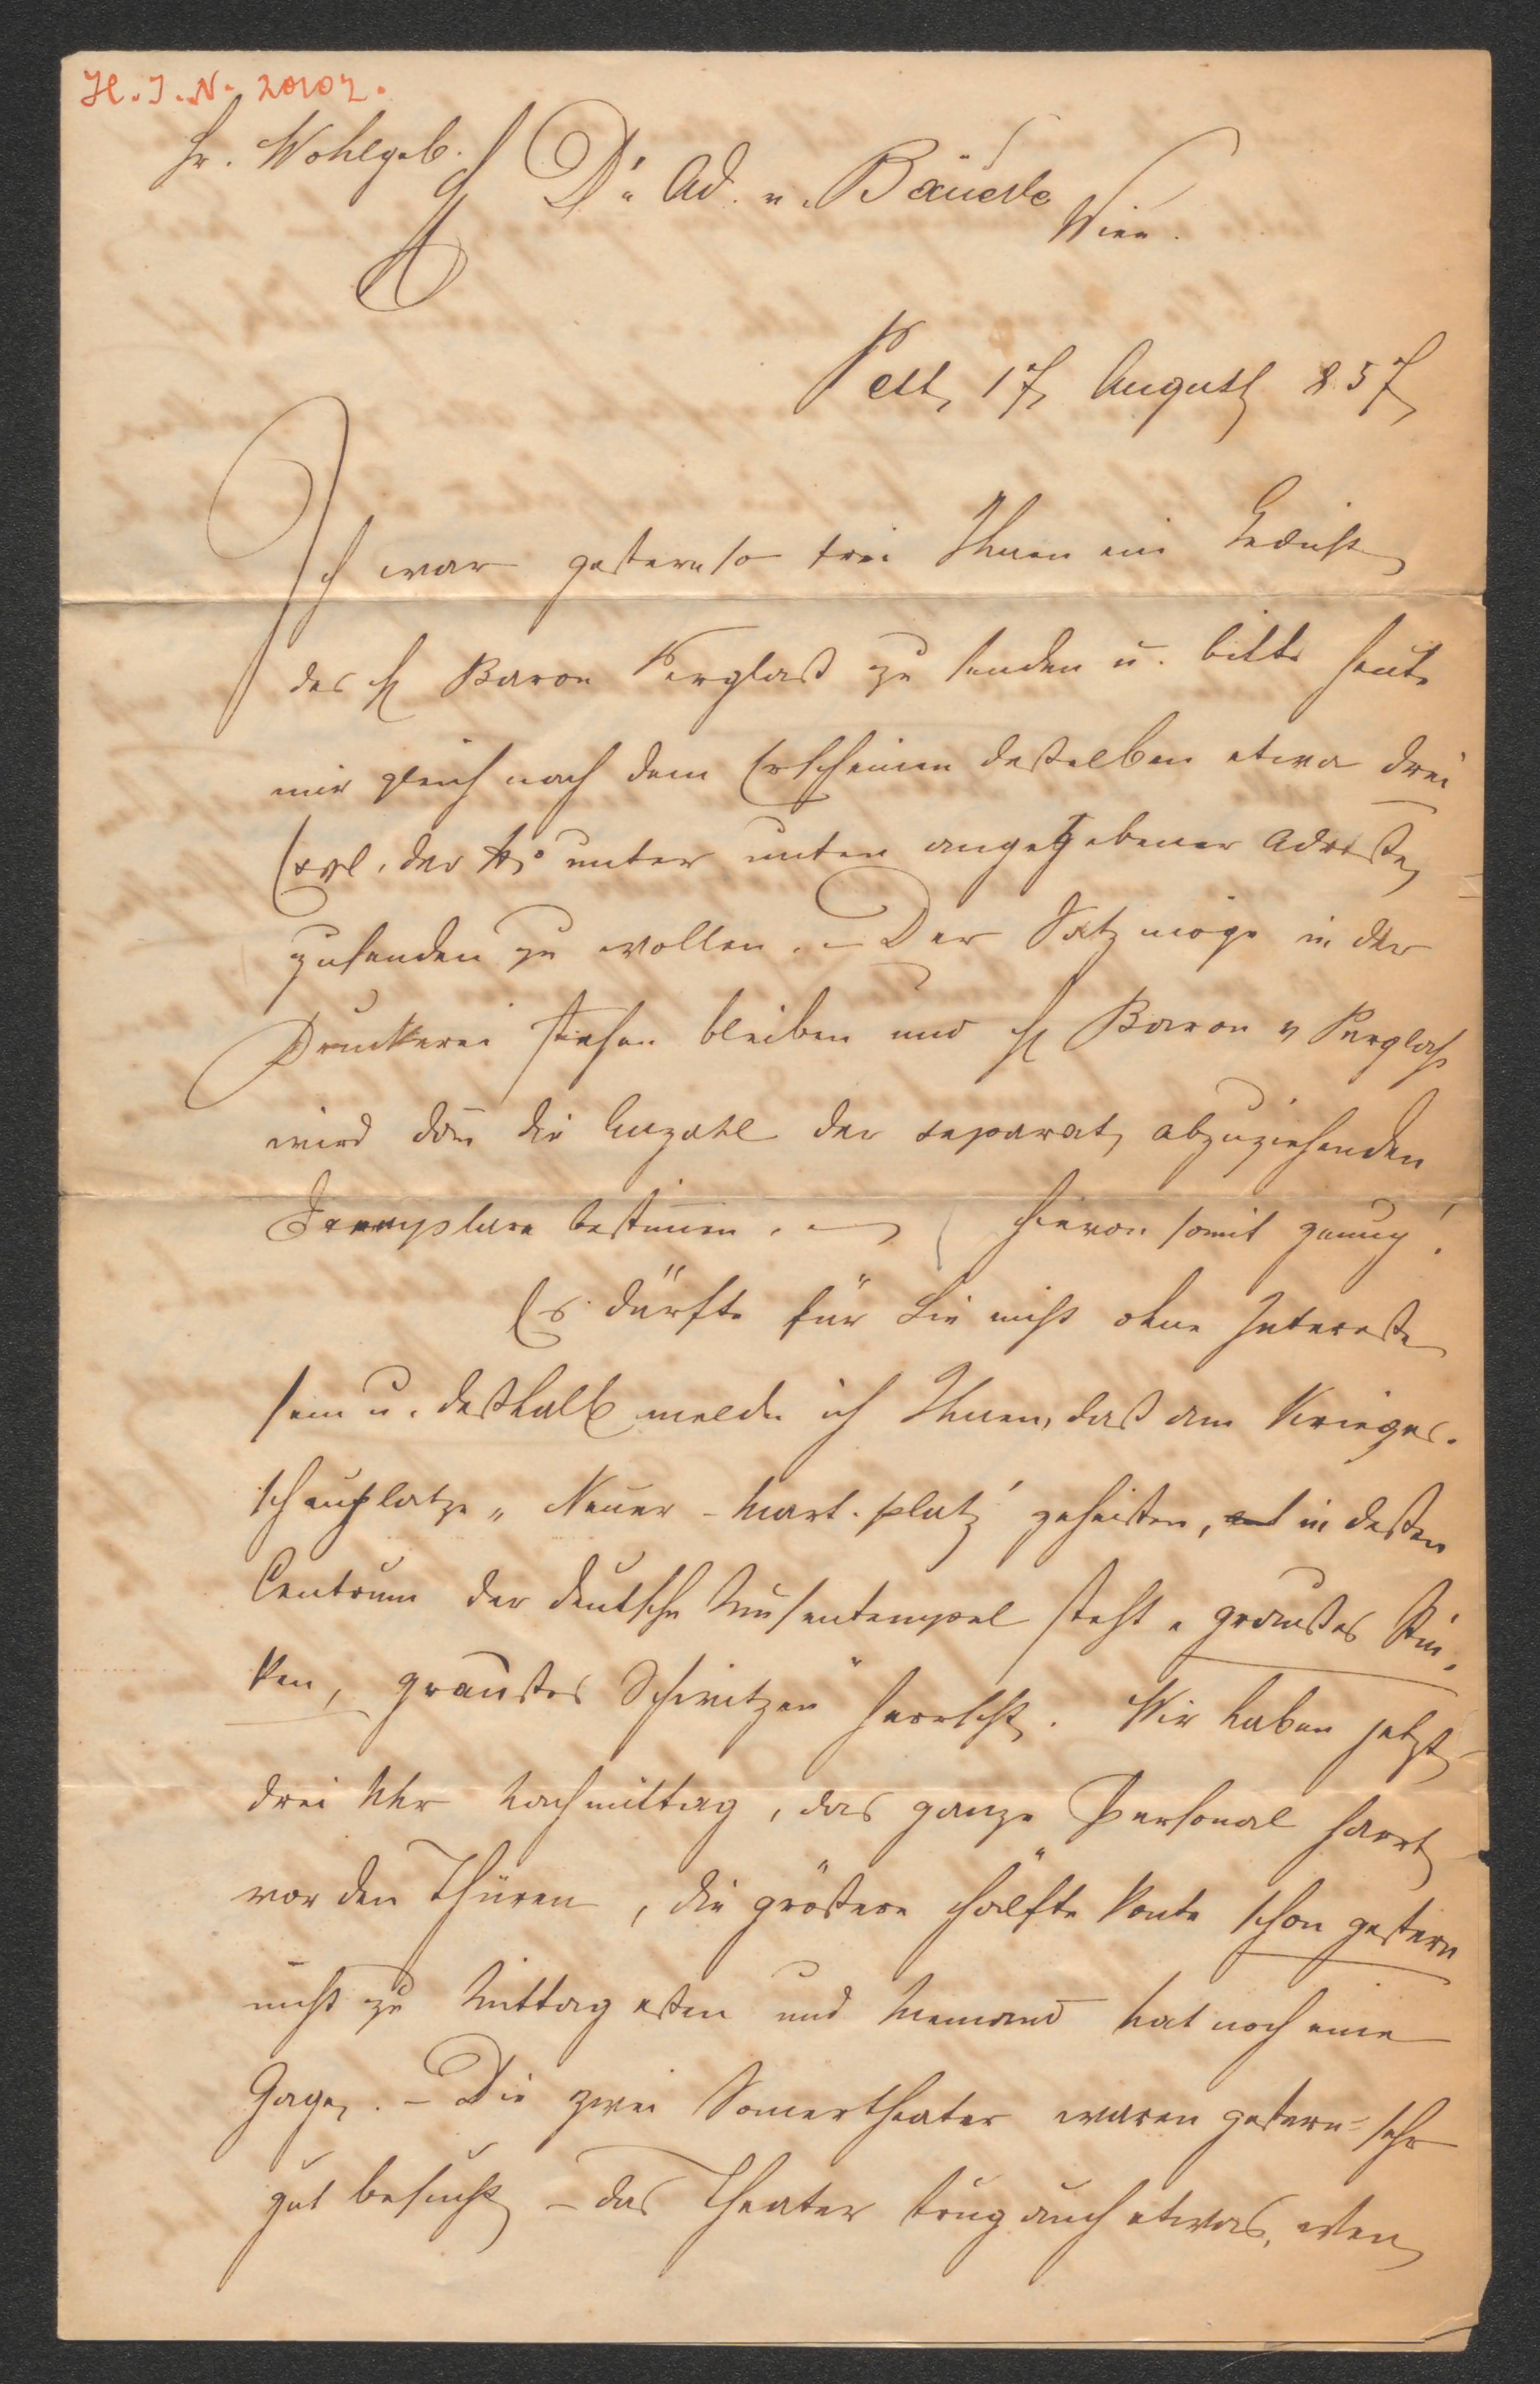 H.I.N. 20102.
Sr. Wohlgeb.
Dr. Ad. v. Bäuerle
Wien.
Pest, 17 August 857
Ich war gestern so frei Ihnen ein Gedicht
des H Baron Perglaß zu senden u. bitte heute
mir gleich nach dem Erscheinen deßelben etwa drei
Expl. der No unter unten angegebener Adreße
zusenden zu wollen. – Der Satz möge in der
Druckerei stehen bleiben und H Baron v Perglaß
wird dan̄ die Anzahl der separat abzuziehenden
Exemplare bestim̄en. – Hievon somit genug!
Es dürfte für Sie nicht ohne Intereße
sein u. deßhalb melde ich Ihnen, daß am Krieges-
schauplatze „Neuer-Markt-platz" geheißen, in deßen
Centrum der deutsche Musentempel steht „großes
ken, großes Schwitzen" herrscht. Wir haben jetzt
drei Uhr Nachmittag, das ganze Personal harrt
vor den Thüren, die größere Hälfte konte schon gestern
nicht zu Mittag eßen und Niemand hat noch eine
Gage. – Die zwei Som̄ertheater waren gestern sehr
gut besucht – das Theater trug auch etwas, wen̄